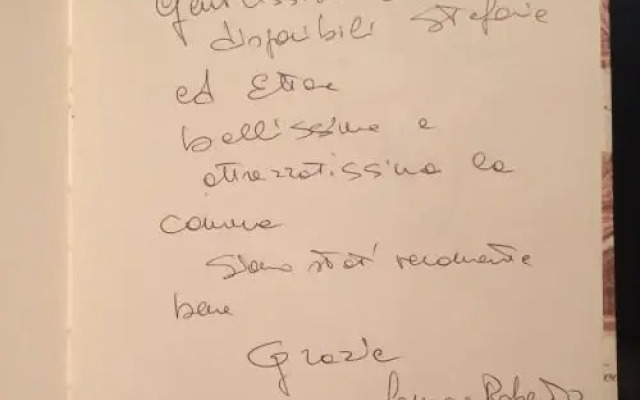 disponibili Stefania
ed Ettore
bellissima e
attrezzatissima la
camera
Siamo stati veramente
bene
Grazie